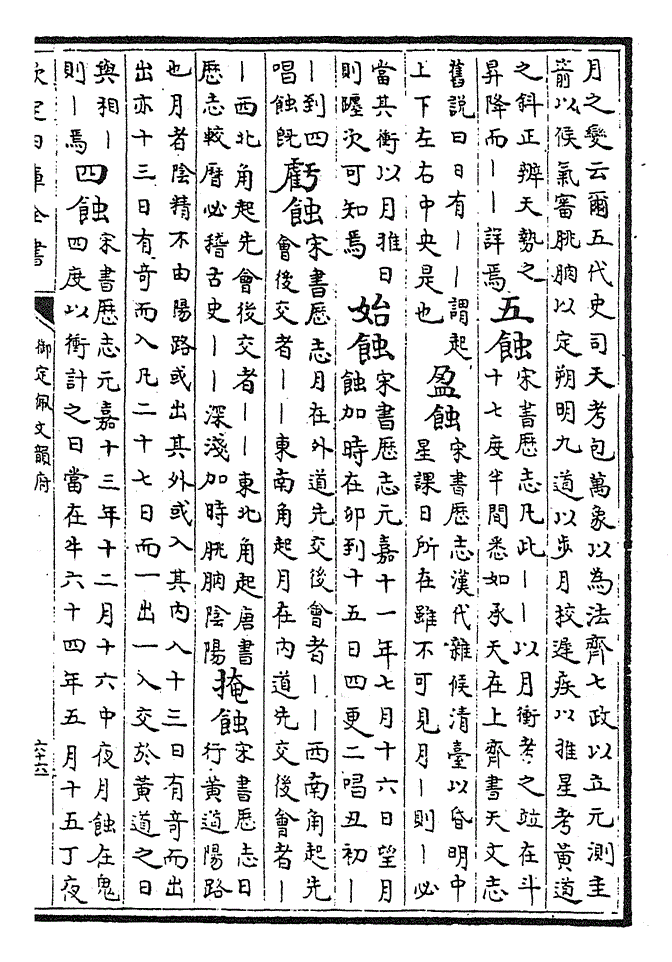 月之變云爾五代史司天考包萬象以為法齊七政以立元測圭
箭以候氣審朓朒以定朔明九道以步月校遲疾以推星考黃道
之斜正辨天勢之
昇降而｜｜詳焉
五蝕
宋書歷志凡此｜｜以月衝考之竝在斗
十七度半間悉如承天在上齊書天文志
舊說曰日有｜｜謂起
上下左右中央是也
盈蝕
宋書歷志漢代雜候清臺以昏明中
星課日所在雖不可見月｜則｜必
當其衝以月推日
則躔次可知焉
始蝕
宋書歷志元嘉十一年七月十六日望月
蝕加時在卯到十五日四更二唱丑初｜
｜到四
唱蝕旣
虧蝕
宋書歷志月在外道先交後會者｜｜西南角起先
會後交者｜｜東南角起月在內道先交後會者｜
｜西北角起先會後交者｜｜東北角起唐書
歷志較曆必稽古史｜｜深淺加時朓朒陰陽
掩蝕
宋書歷志日
行黃道陽路
也月者陰精不由陽路或出其外或入其內入十三日有奇而出
出亦十三日有奇而入凡二十七日而一出一入交於黃道之日
與相｜
則｜焉
四蝕
宋書歷志元嘉十三年十二月十六中夜月蝕在鬼
四度以衝計之日當在牛六十四年五月十五丁夜
欽定四庫全書
御定佩文韻府